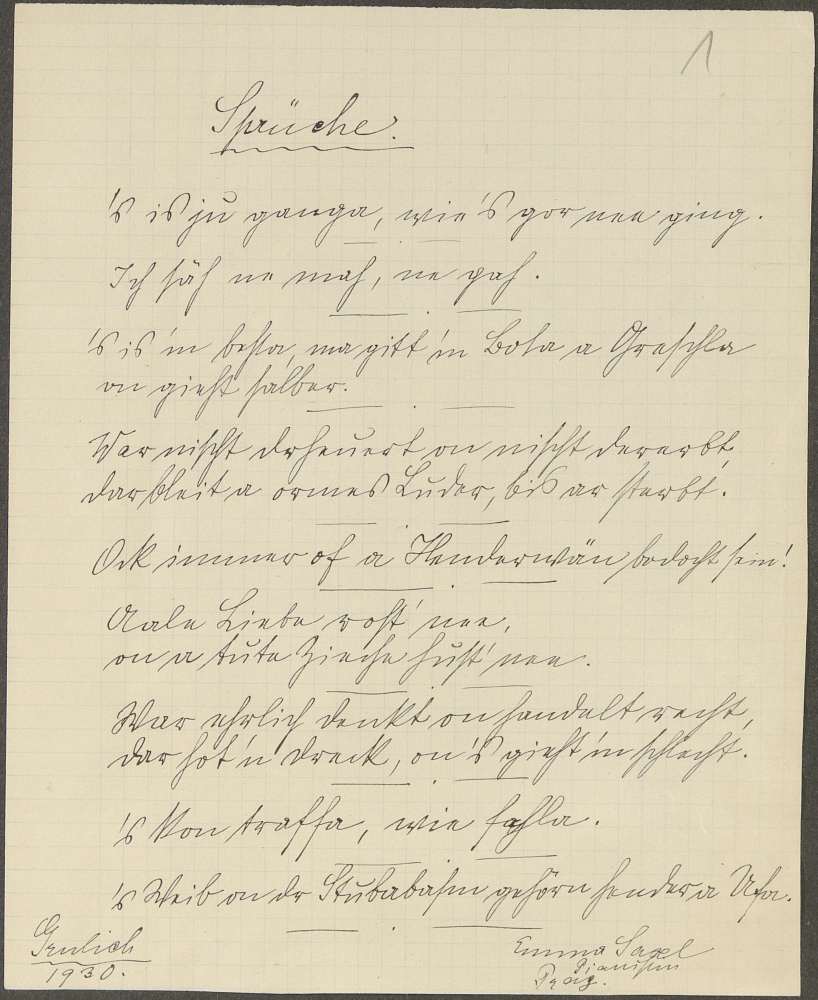 1
Sprüche.
's is ju ganga, wie's gor nee ging.
Ich säh ne mah, ne gah.
's is 'm besta, ma gitt 'm Bota a Greschla
on gieht salber.
War nischt derheuert on nischt dererbt,
dar bleit a ormes Luder, bis ar sterbt.
Ock immer of a Henderwän bedocht sein!
Aale Liebe rost' nee,
on a tute Zieche hust' nee.
War ehrlich denkt on handelt recht,
dar hot 'n Dreck, on 's gieht 'm schlecht.
's kon traffa, wie fahla.
's Weib on dr Stubabasm gehörn hender a Ufa.
Grulich
1930.
Emma Saxl
Pianistin
Prag.